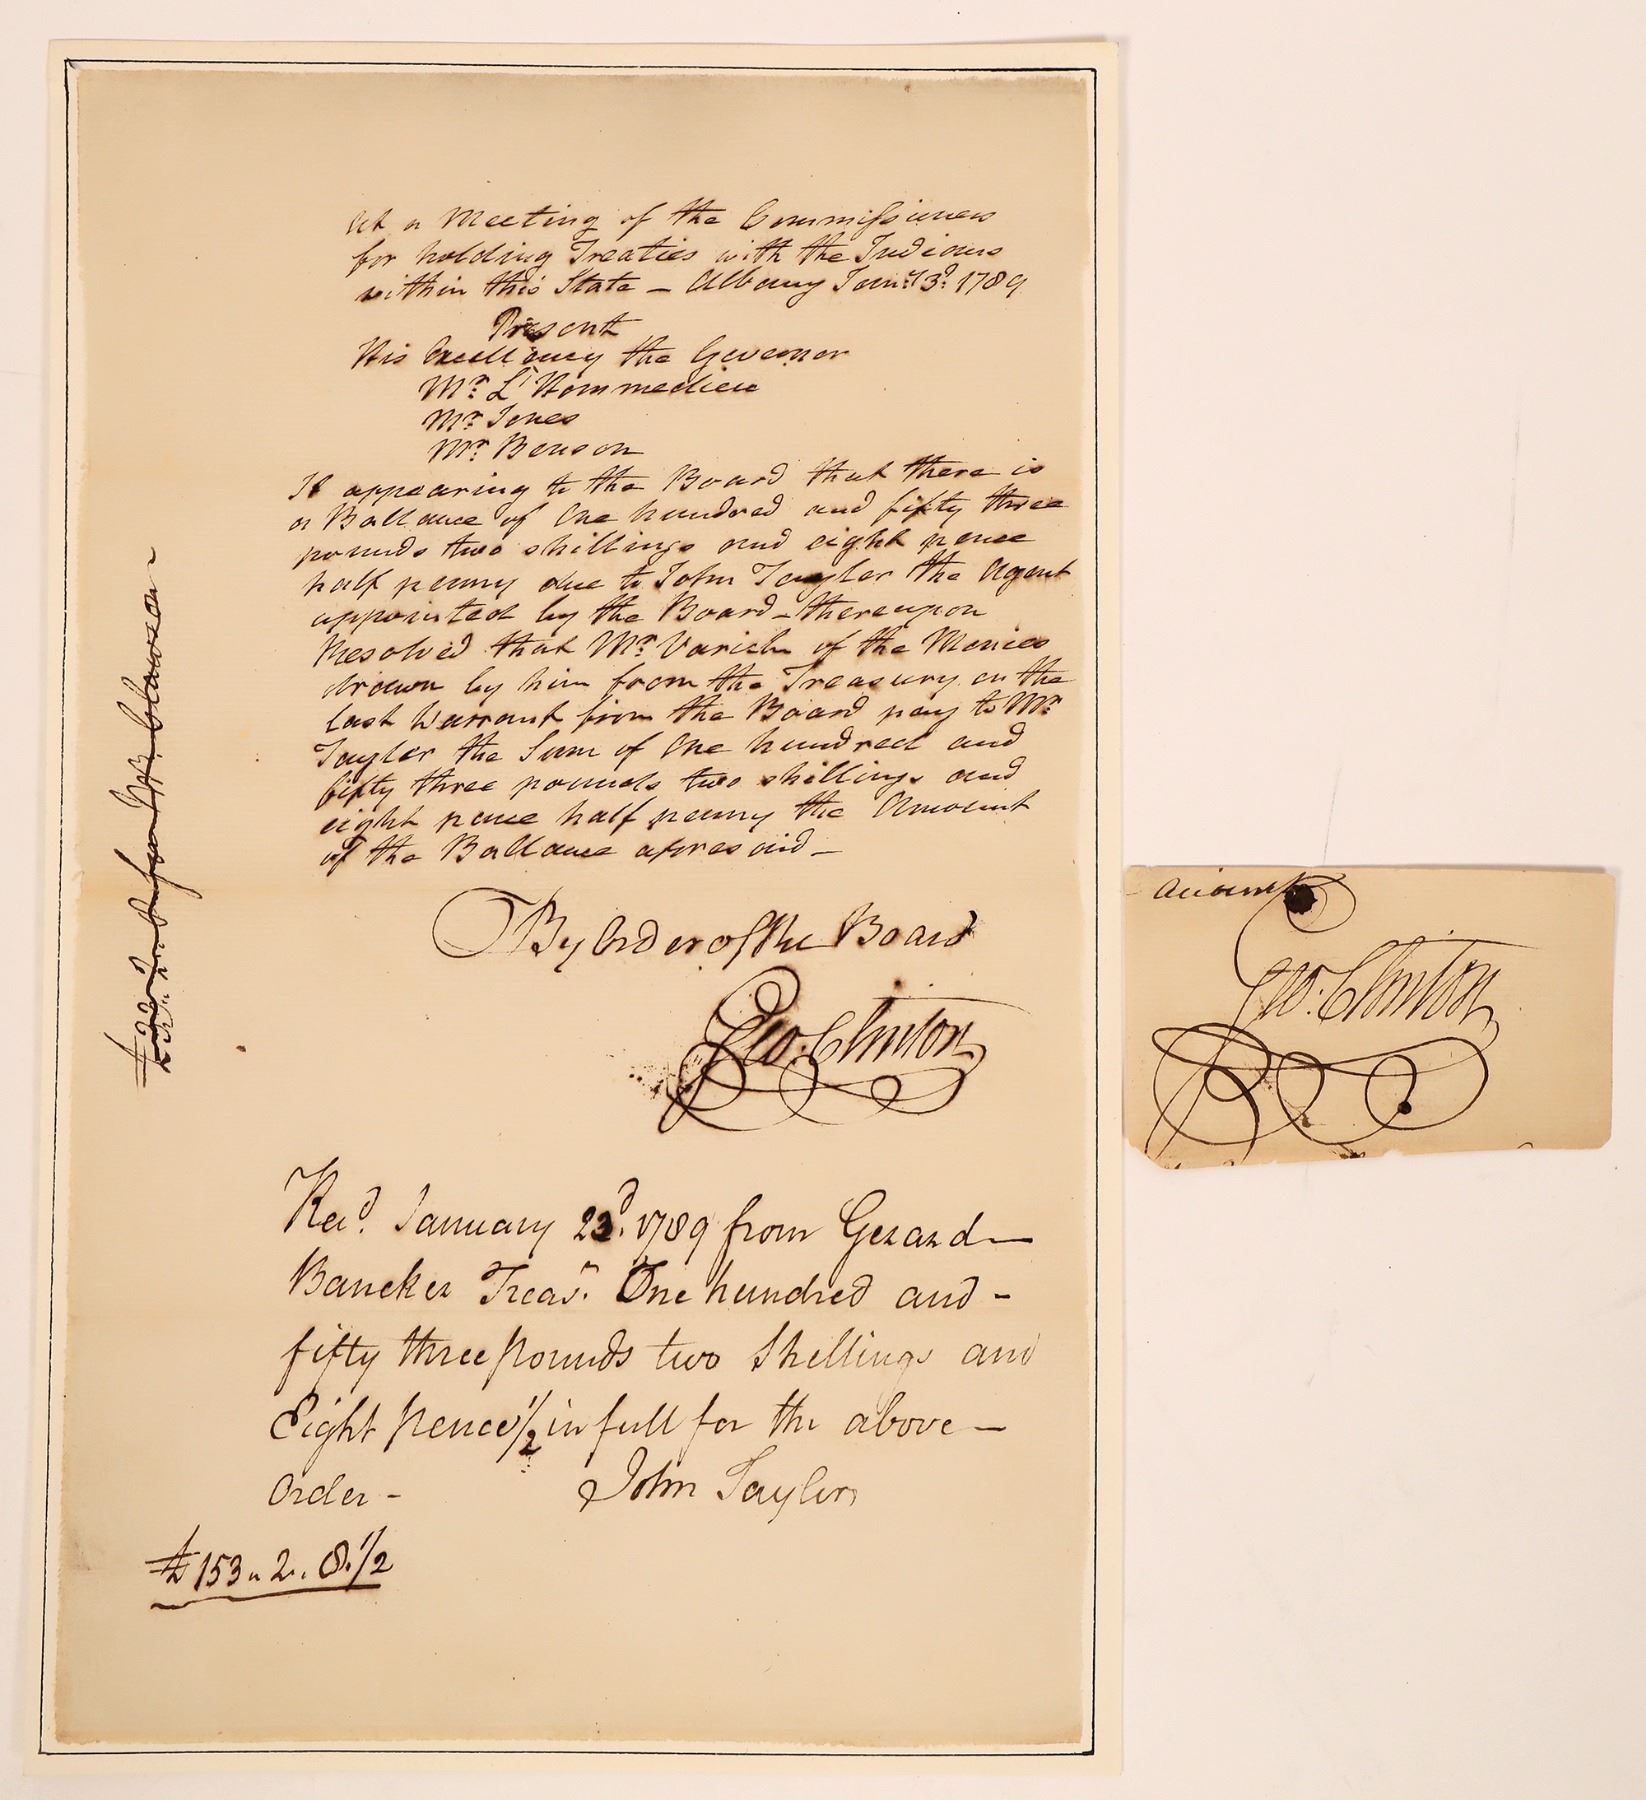 At a Meeting of the Commissioners
for holding Treaties with the Indians
within this State – Albany Jany. 3d. 1789
Present
His Excellency the Governor
Mr. L'Hommedieu
Mr. Jones
Mr. Benson
It appearing to the Board that there is
a Ballance of One hundred and fifty three
pounds two shillings and eight pence
half penny due to John Tayler the Agent
appointed by the Board – thereupon
Resolved that Mr. Varick of the Monies
drawn by him from the Treasury on the
last Warrant from the Board pay to Mr.
Tayler the Sum of One hundred and
fifty three pounds two shillings and
eight pence half penny the Amount
of the Ballance aforesaid –
By Order of the Board
Geo. Clinton
Recd. January 23d. 1789 from Gerard –
Bancker Treasr. One hundred and –
fifty three pounds two Shillings and
Eight pence 1/2 in full for the above –
Order –
John Tayler
£153 " 2 " 8. 1/2
Geo. Clinton